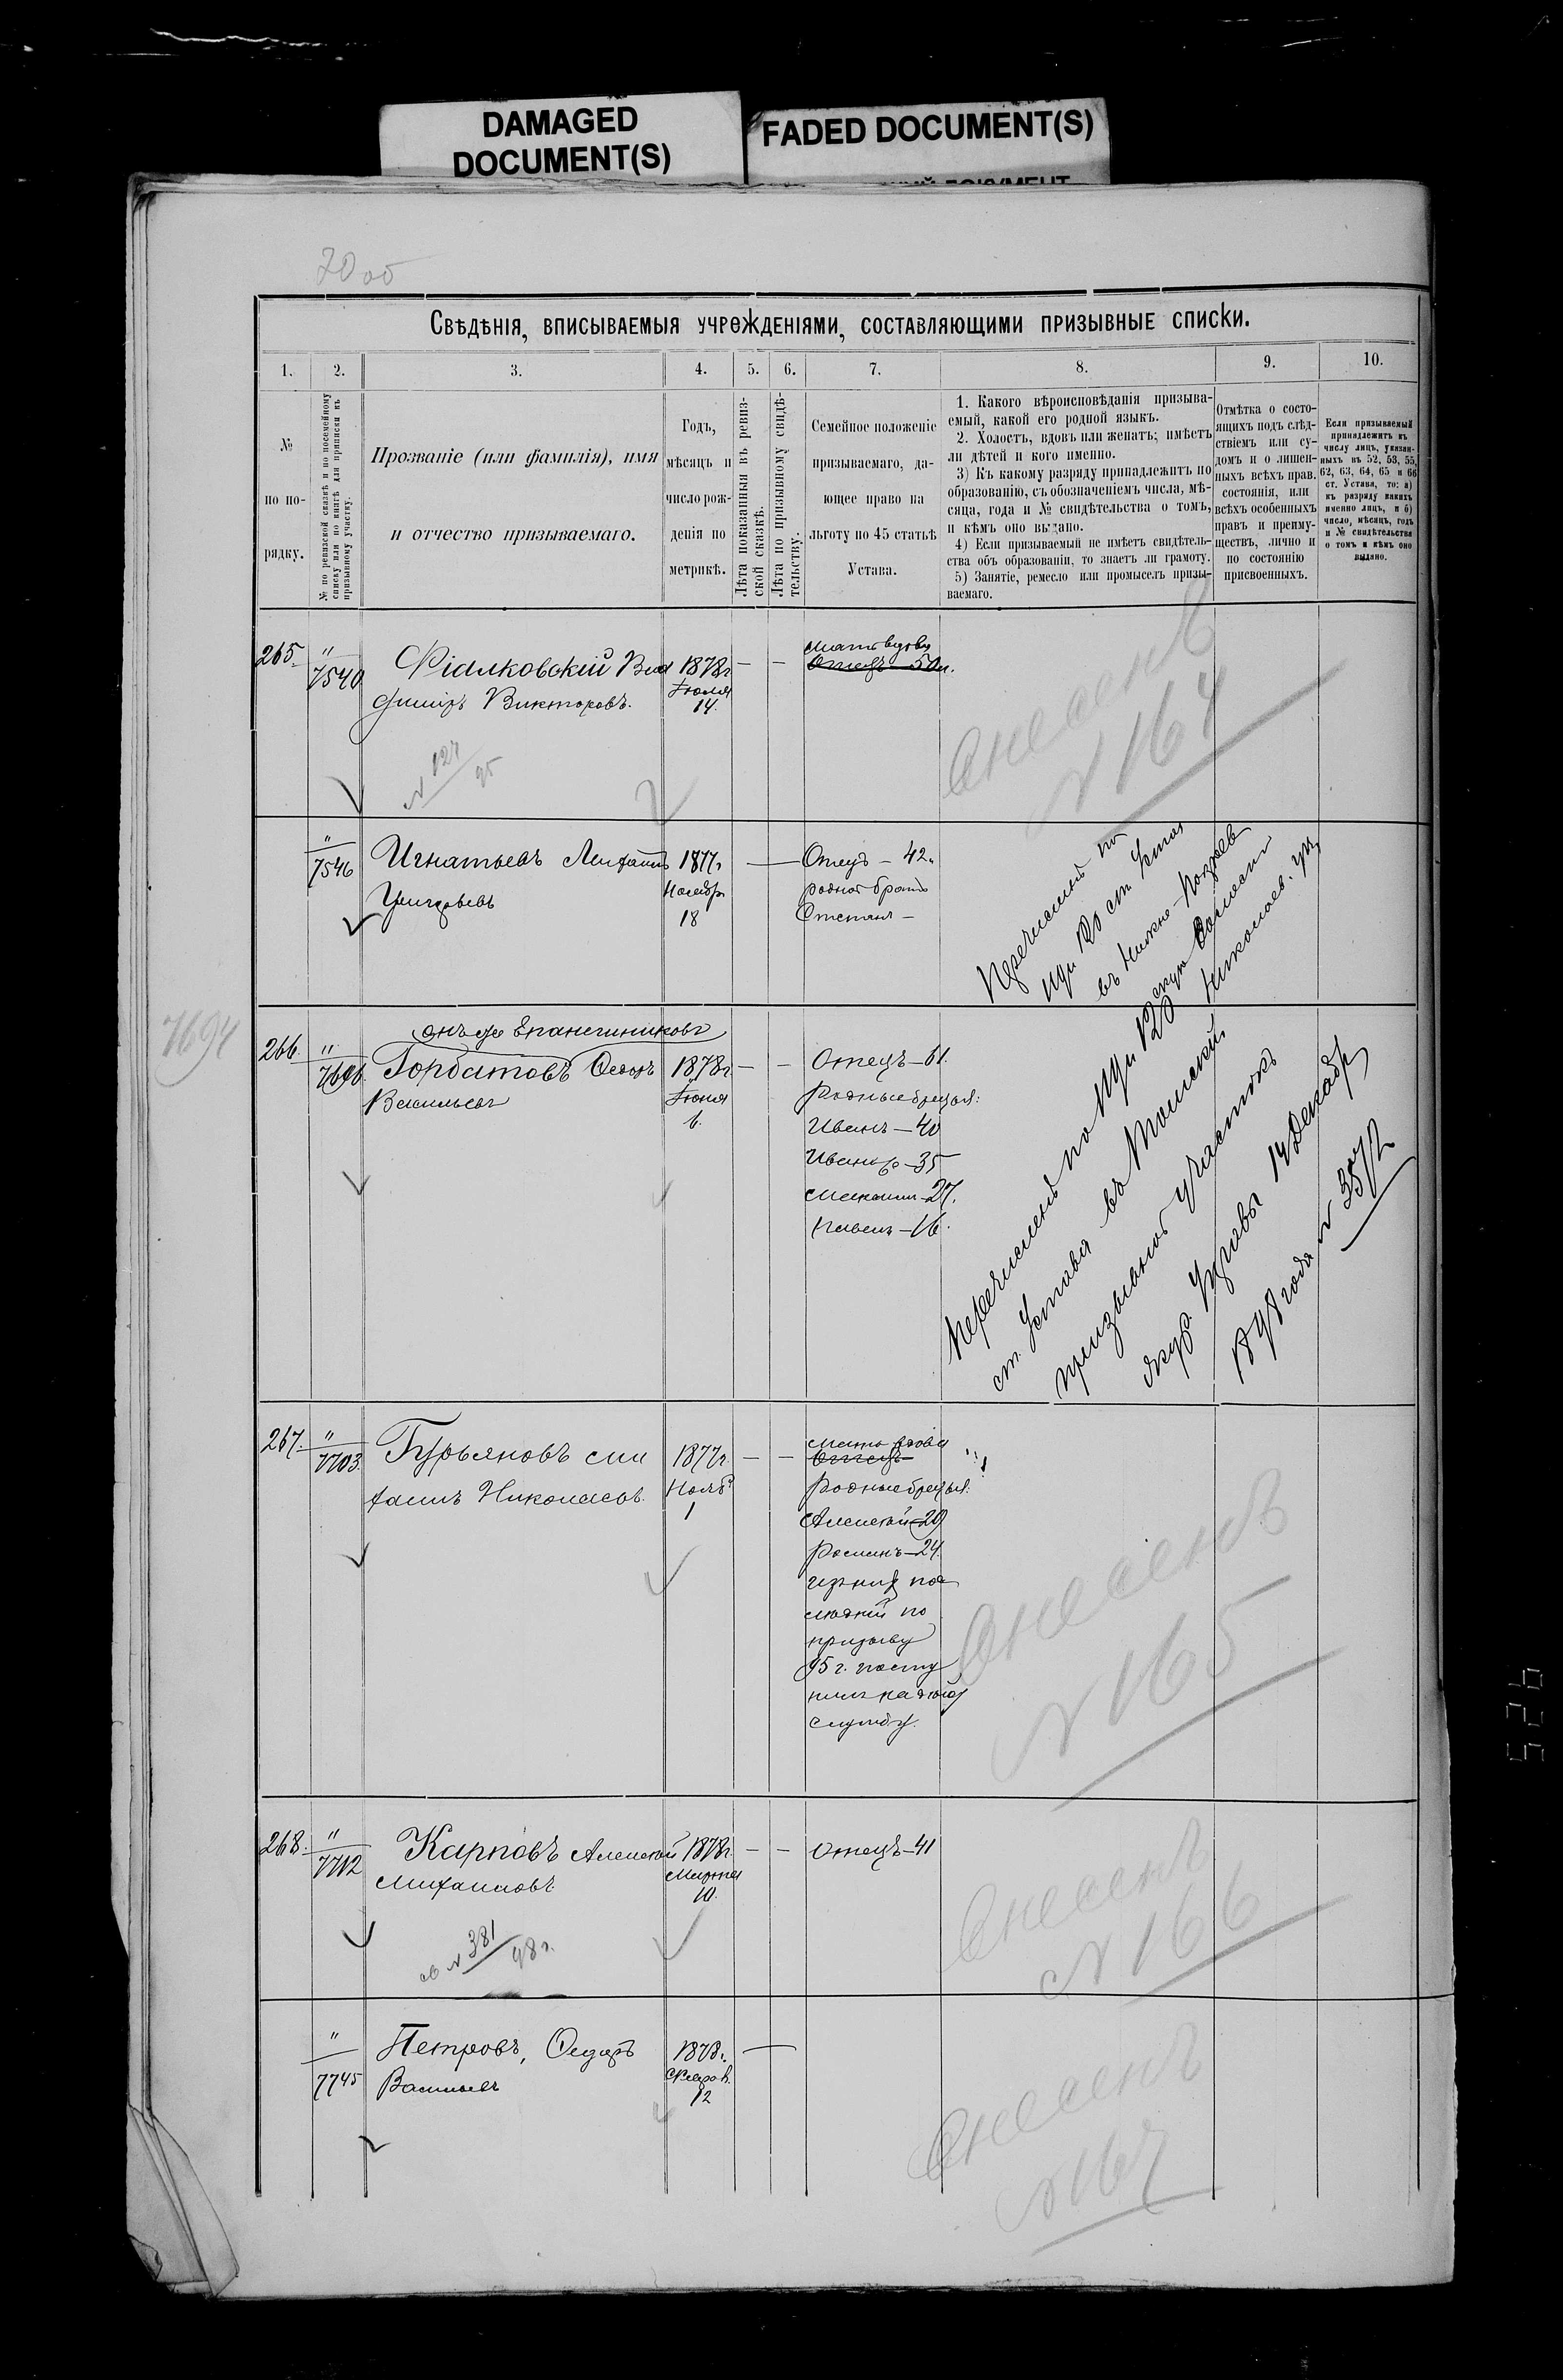 DAMAGED
DOCUMENT(S)
FADED DOCUMENT(S)
20 об
Свѣдѣнія, вписываемыя учрежденіями, составляющими призывные списки.
1. 2. 3. 4. 5. 6. 7. 8. 9. 10.
№
по по-
рядку.
№ по ревизской сказкѣ и по посемейному
списку или по книгѣ для приписки къ
призывному участку.
Прозваніе (или фамилія), имя
и отчество призываемаго.
Годъ,
мѣсяцъ и
число рож-
денія по
метрикѣ.
Лѣта показанныя въ ревиз-
ской сказкѣ.
Лѣта по призывному свидѣ-
тельству.
Семейное положеніе
призываемаго, да-
ющее право на
льготу по 45 статьѣ
Устава.
1. Какого вѣроисповѣданія призыва-
емый, какой его родной языкъ.
2. Холостъ, вдовъ или женатъ; имѣетъ
ли дѣтей и кого именно.
3) Къ какому разряду принадлежитъ по
образованію, съ обозначеніемъ числа, мѣ-
сяца, года и № свидѣтельства о томъ,
и кѣмъ оно выдано.
4) Если призываемый не имѣетъ свидѣтель-
ства объ образованіи, то знаетъ ли грамоту.
5) Занятіе, ремесло или промыселъ призы-
ваемаго.
Отмѣтка о состо-
ящихъ подъ слѣд-
ствіемъ или су-
домъ и о лишен-
ныхъ всѣхъ прав.
состоянія, или
всѣхъ особенныхъ
правъ и преиму-
ществъ, лично и
по состоянію
присвоенныхъ.
Если призываемый
принадлежитъ къ
числу лицъ, указан-
ныхъ въ 52, 53, 55,
62, 63, 64, 65 и 66
ст. Устава, то: а)
къ разряду какихъ
именно лицъ, и б)
число, мѣсяцъ, годъ
и № свидѣтельства
о томъ и кѣмъ оно
выдано.
265. " 7540 Фіалковскій Вла
диміръ Викторовъ.
1878г.
Іюля
14.
— —
Мать вдова
Отецъ — 50 л.
№ 127/95
Внесенъ
№ 164
" 7546 Игнатьевъ
1877г.
Ноября
18
—
Отецъ — 42.
родной братъ
Перечисленъ по
ЦИ 120 ст. Устав
7694
266. " 7696
онъ же Епанечниковъ
Горбатовъ Ѳедоръ
Васильевъ
1878г.
Іюня
6.
— —
Отецъ — 61.
Родные братья:
Иванъ — 40
Иванъ — 35
Михаилъ — 27.
Павелъ — 16.
Перечисленъ по 120
ст. Устава въ Томскій
призывной участокъ
14 Декабр
1898 года № 3572
267. " 7703. Гурьяновъ Ми
хаилъ Николаевъ.
1877г.
Нояб.
1
— —
Мать вдова
Отецъ
Родные братья:
Алексей — 29
Романъ — 24.
изъ нихъ по
слѣдній по
призыву
95 г. посту
пилъ на
службу.
Внесенъ
№ 165
268. " 7712 Карповъ Алексей
Михаиловъ
1878г.
Марта
10.
— —
Отецъ — 41
№ 381/98 г.
Внесенъ
№ 166
" 7745 Петровъ, Ѳедоръ
Васильевъ
1878г.
Февр.
12
—
Внесенъ
№ 167
425